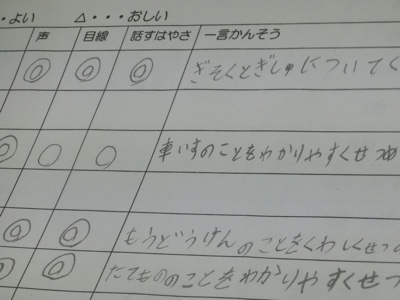 ・よい　△・・・おしい
声 目線 話すはやさ 一言かんそう
◎ ◎ ◎ ぎそくとぎしゅについてく
◎ ○ ○ 車いすのことをわかりやすくせつめ
◎ ◎ もうどうけんのことをくわしくせつ
◎ ◎ たてもののことをわかりやすくせつ